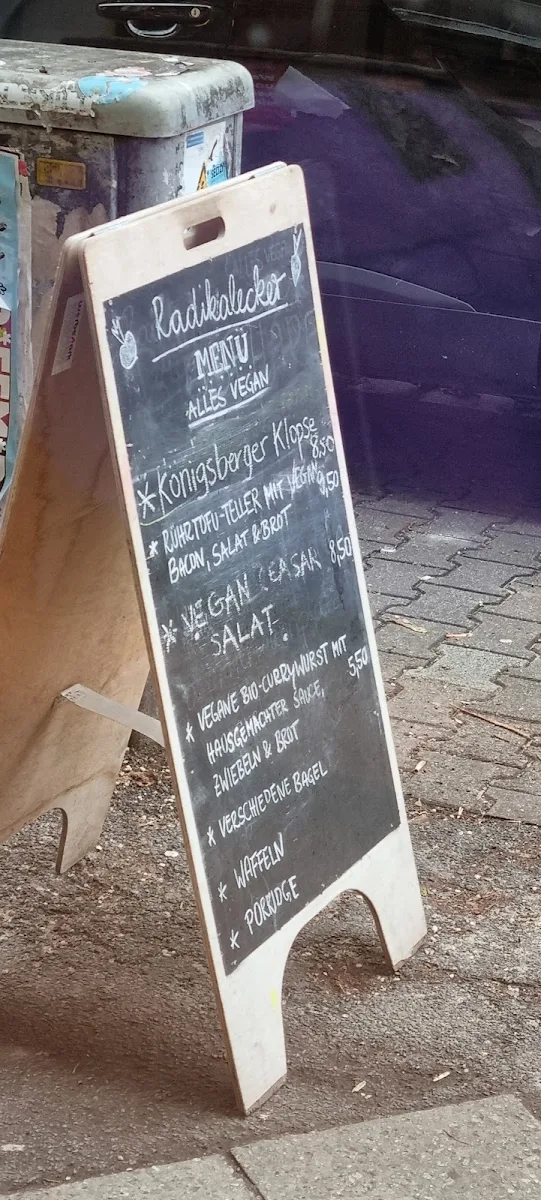 Radikalecker
MENÜ
ALLES VEGAN
*Königsberger Klopse 8,50
* RÜHRTOFU-TELLER MIT VEGAN 9,50
BACON, SALAT & BROT
* VEGAN CEASAR 8,50
SALAT
* VEGANE BIO-CURRYWURST MIT 5,50
HAUSGEMACHTER SAUCE,
ZWIEBELN & BROT
* VERSCHIEDENE BAGEL
* WAFFELN
* PORRIDGE